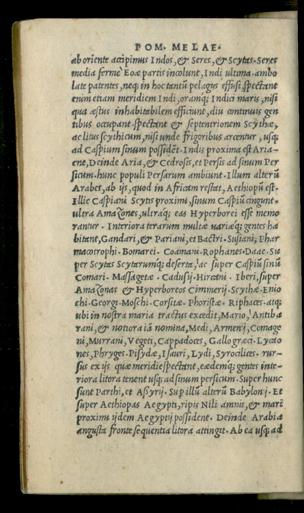 POM. MELAE.
ab oriente accipimus Indos, & Seres, & Scytas. Seres
media ferme Eoæ partis incolunt, Indi ultima. ambo
late patentes, neq; in hoc tantũ pelagus effusi. spectant
enim etiam meridiem Indi, oramq; Indici maris, nisi
qua æstus inhabitabilem efficiunt, diu continuis gen
tibus occupant. spectant & septentrionem Scythæ,
ac litus scythicum, nisi unde frigoribus arcentur, usq;
ad Caspium sinum possidẽt. Indis proxima est Aria-
ne, Deinde Aria, & Cedrosis, et Persis ad sinum Per
sicum. hunc populi Persarum ambiunt. Illum alterũ
Arabes, ab ijs, quod in Africam restat, Aethiopũ est.
Illic Caspiani Scytis proximi, sinum Caspiũ cingunt.
ultera Amazones, ultraq; eas Hyperborei esse memo
rantur. Interiora terarum multæ variæq; gentes ha
bitant, Gandari, & Pariani, et Bactri. Susiani, Phar
macotrophi. Bomarci. Coamani. Rophanes. Daæ. Su
per Scytas Scytarumq; deserta, ac super Caspiũ sinũ
Comari. Massagetæ. Cadusij. Hircani. Iberi, super
Amazonas & Hyperboreos Cimmerij. Scythæ. Enio
chi. Georgi. Moschi. Corsitæ. Phoristæ. Riphaces. atq;
ubi in nostra maria tractus excedit, Mario, Antiba
rani, & notiora iã nomina, Medi, Armenij, Comage
ni, Murrani, Vegeti, Cappadoces, Gallogræci. Lycao
nes, Phryges. Pisydæ, Isauri, Lydi, Syrocilices. rur-
sus ex ijs quæ meridiẽ spectant, eædemq; gentes inte-
riora litora tenent usq; ad sinum persicum. Super hunc
sunt Parthi, et Assyrij. Sup illũ alterũ Babylonij. Et
super Aethiopas Aegypti, ripis Nili amnis, & mari
proximi ijdem Aegyptij possident. Deinde Arabia
angusta fronte sequentia litora attingit. Ab ea usq; ad